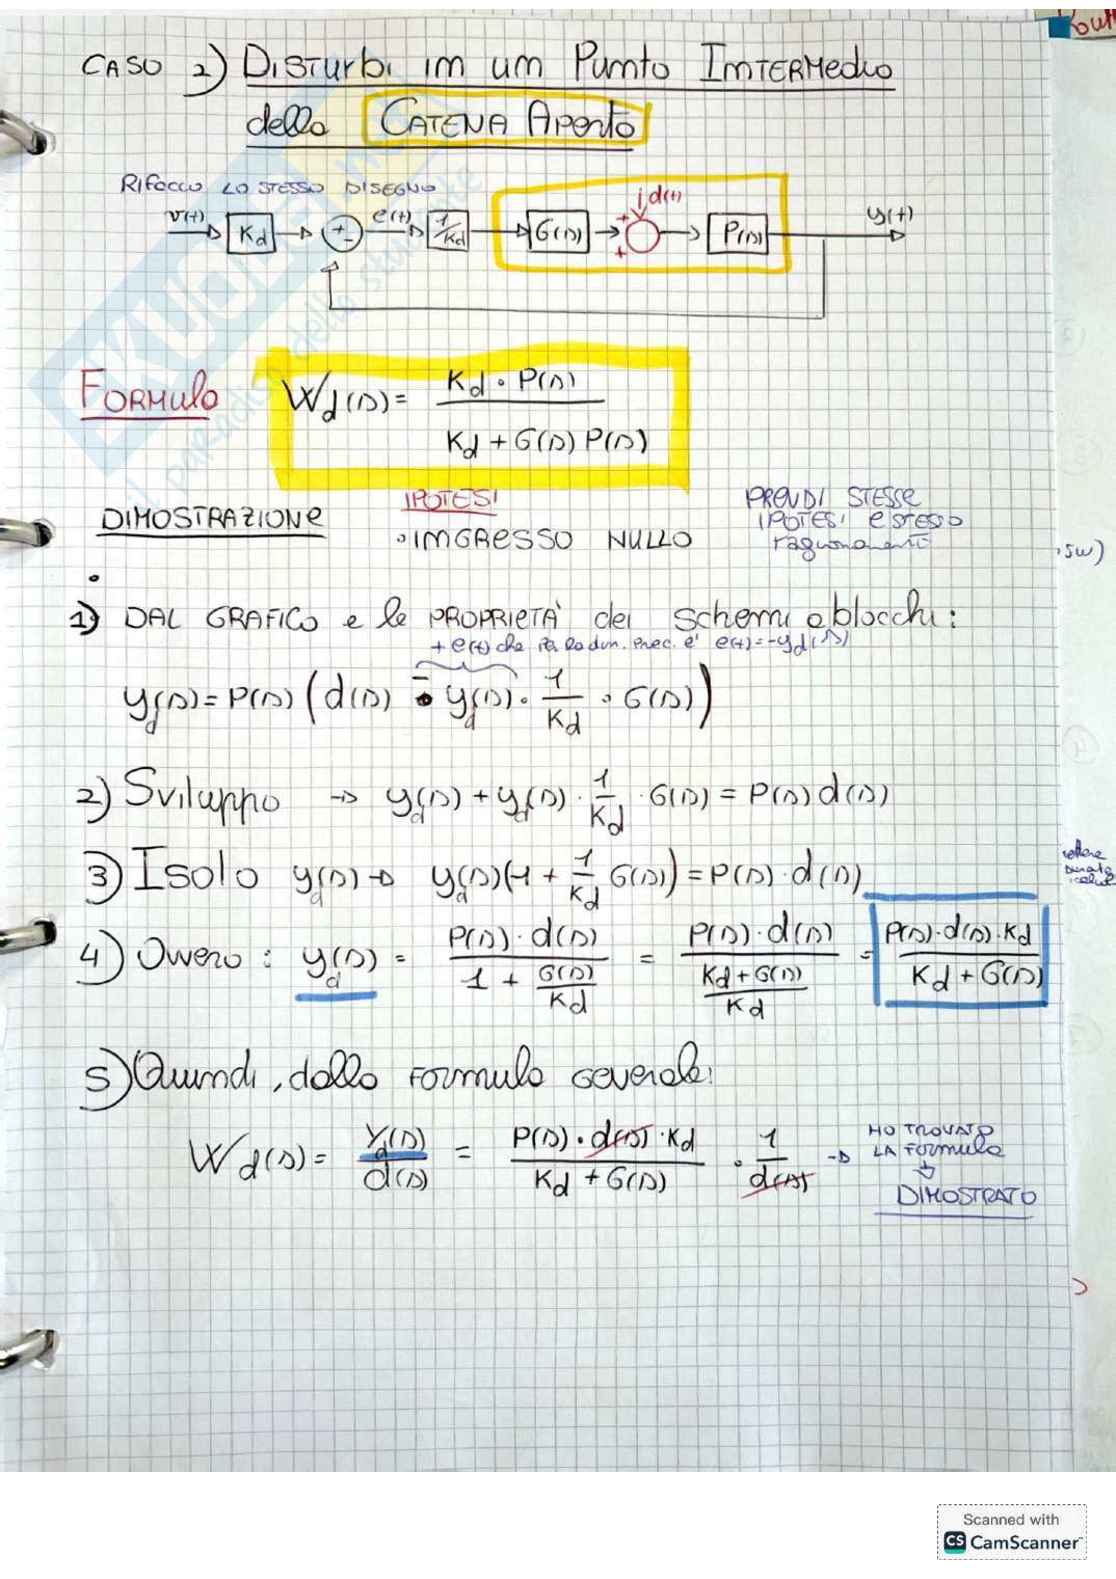 CASO 2) Disturbi in un Punto Intermedio
della CATENA Aperta
Rifaccio LO STESSO DISEGNO
r(t) Kd + - e(t) 1/Kd G(s) + + d(t) P(s) y(t)
FORMula Wd(s) = Kd · P(s) / Kd + G(s) P(s)
DIMOSTRAZIONE
IPOTESI
· INGRESSO NULLO
PRENDI STESSE
IPOTESI e STESSO
ragionamento
·sw)
1) DAL GRAFICO e le PROPRIETÀ dei schemi a blocchi:
+ e(t) che per la dim. prec. e' e(t)=-yd(s)
yd(s) = P(s) (d(s) - yd(s) · 1/Kd · G(s))
2) Sviluppo → yd(s) + yd(s) · 1/Kd · G(s) = P(s) d(s)
3) Isolo yd(s) → yd(s)(1 + 1/Kd G(s)) = P(s) · d(s)
4) Ovvero: yd(s) = P(s) · d(s) / 1 + G(s)/Kd = P(s) · d(s) / Kd + G(s)/Kd = P(s) · d(s) · Kd / Kd + G(s)
5) Quindi, dalla Formula Generale:
Wd(s) = Yd(s) / d(s) = P(s) · d(s) · Kd / Kd + G(s) · 1/d(s) →
HO TROVATO
LA Formula
↓
DIMOSTRATO
SKUOLA.net
il paradiso dello studente
Scanned with
CS CamScanner